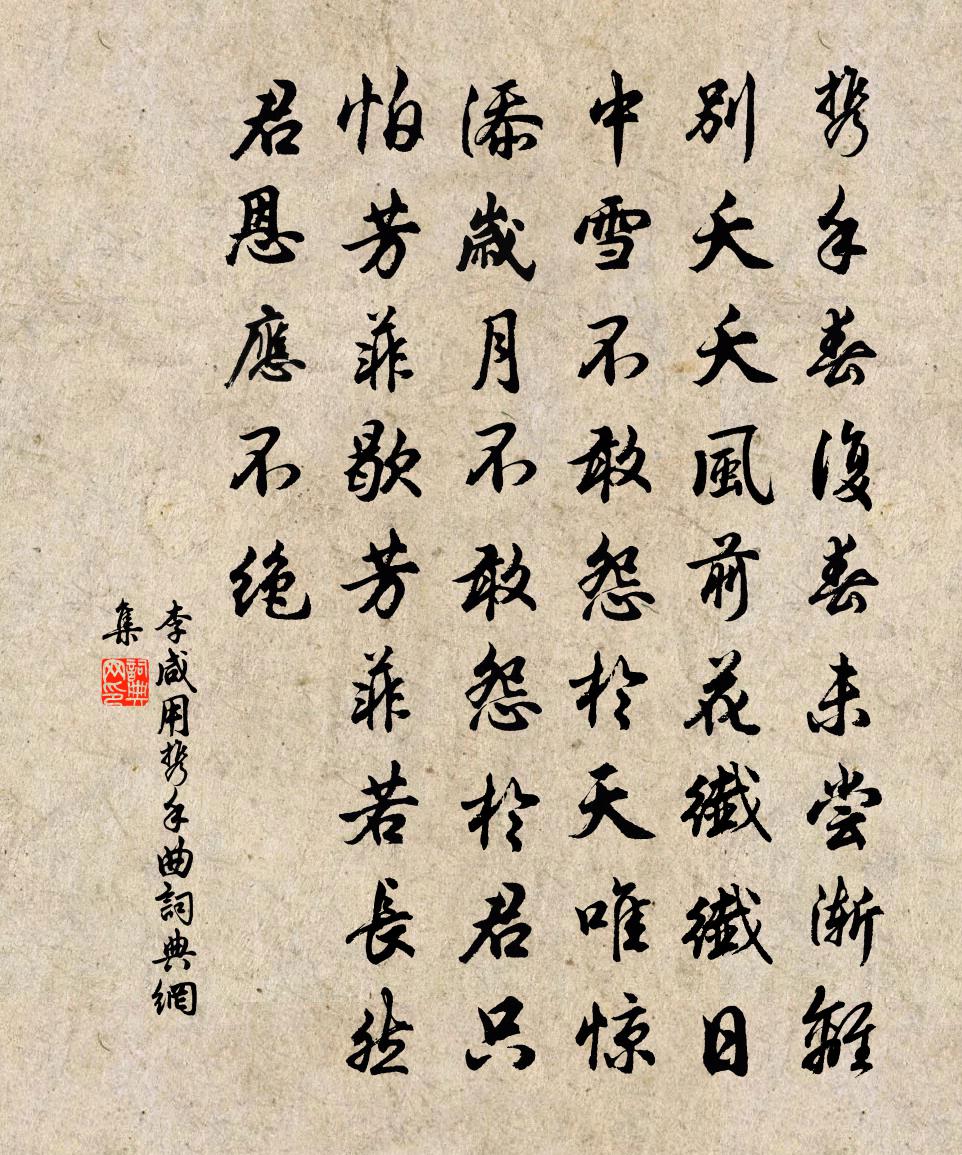 携手春復春未嘗漸離
別夭夭風前花纖纖日
中雪不敢怨於天唯惊
添歲月不敢怨於君只
怕芳菲歇芳菲若長然
君恩應不絶
李咸用携手曲詞典網
集
詞典
网印